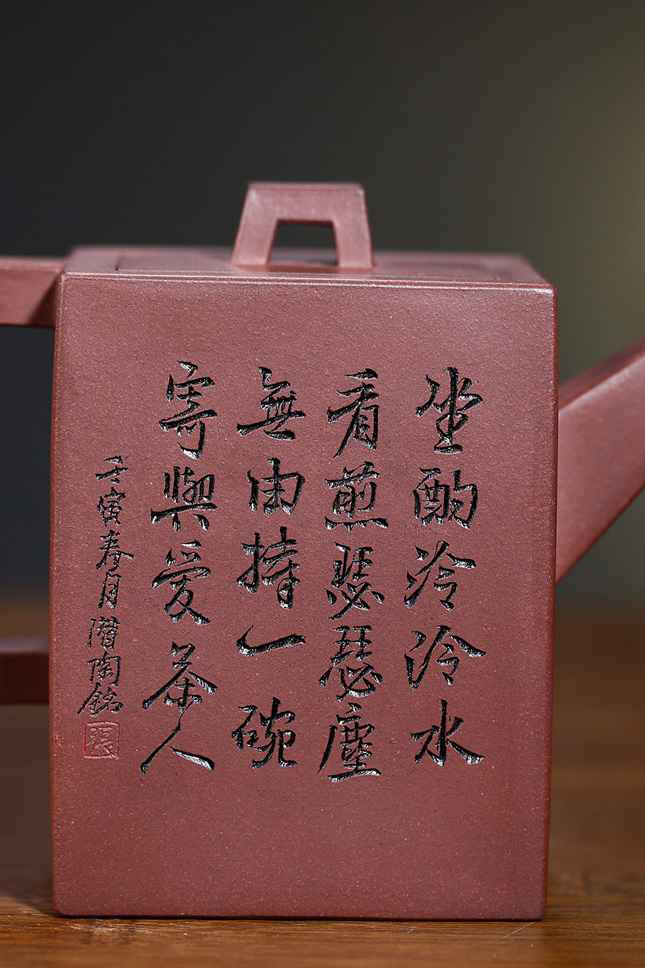 坐酌泠泠水
看煎瑟瑟塵
無由持一碗
寄與愛茶人
壬寅春月潛陶銘
張